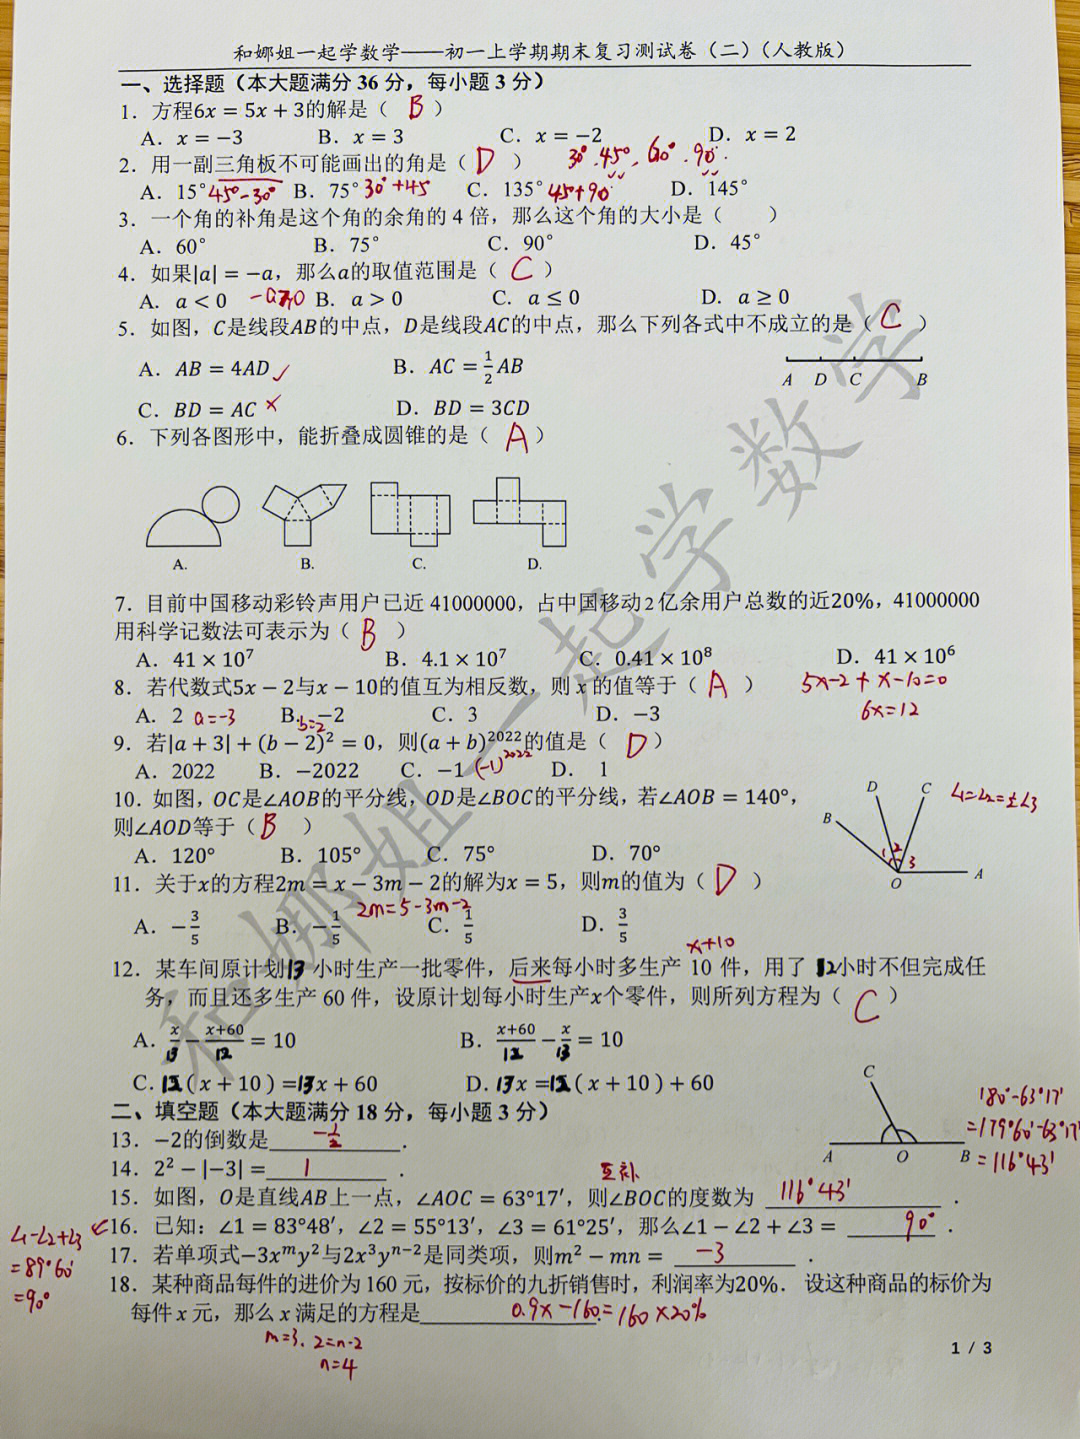 和娜姐一起学数学——初一上学期期末复习测试卷（二）（人教版）
一、选择题（本大题满分 36 分，每小题 3 分）
1．方程6x = 5x + 3的解是（ B ）
A．x = −3 B．x = 3 C．x = −2 D．x = 2
2．用一副三角板不可能画出的角是（ D ） 30°.45°.60°.90°.
A．15° 45°-30° B．75° 30°+45 C．135° 45+90° D．145°
3．一个角的补角是这个角的余角的 4 倍，那么这个角的大小是（ ）
A．60° B．75° C．90° D．45°
4．如果|a| = −a，那么a的取值范围是（ C ）
A．a < 0 -a≥0 B．a > 0 C．a ≤ 0 D．a ≥ 0
5．如图，C是线段AB的中点，D是线段AC的中点，那么下列各式中不成立的是（ C ）
A．AB = 4AD ✓ B．AC = 1/2 AB
A D C B
C．BD = AC × D．BD = 3CD
6．下列各图形中，能折叠成圆锥的是（ A ）
A. B. C. D.
7．目前中国移动彩铃声用户已近 41000000，占中国移动 2 亿余用户总数的近20%，41000000
用科学记数法可表示为（ B ）
A．41 × 10⁷ B．4.1 × 10⁷ C．0.41 × 10⁸ D．41 × 10⁶
8．若代数式5x − 2与x − 10的值互为相反数，则 x 的值等于（ A ） 5x-2+x-10=0
A．2 a=-3 B．−2 b=2 C．3 D．−3 6x=12
9．若|a + 3| + (b − 2)² = 0，则(a + b)²⁰²²的值是（ D ）
A．2022 B．−2022 C．−1 (-1)²⁰²² D． 1
10．如图，OC是∠AOB的平分线，OD是∠BOC的平分线，若∠AOB = 140°，
则∠AOD等于（ B ）
A．120° B．105° C．75° D．70°
D C B O A 1 2 3
∠1=∠2=½∠3
11．关于x的方程2m = x − 3m − 2的解为x = 5，则m的值为（ D ）
2m=5-3m-2
A．−3/5 B．−1/5 C．1/5 D．3/5
x+10
12．某车间原计划13 小时生产一批零件，后来每小时多生产 10 件，用了 12小时不但完成任
务，而且还多生产 60 件，设原计划每小时生产x个零件，则所列方程为（ C ）
A．x/13 − (x+60)/12 = 10 B．(x+60)/12 − x/13 = 10
C．12（x + 10）=13x + 60 D．13x =12（x + 10）+ 60
二、填空题（本大题满分 18 分，每小题 3 分）
C A O B
180°-63°17'
=179°60'-63°17'
=116°43'
13．−2的倒数是 -1/2 ．
14．2² − |−3| = 1 ．
互补
15．如图，O是直线AB上一点，∠AOC = 63°17′，则∠BOC的度数为 116°43' ．
16．已知：∠1 = 83°48′，∠2 = 55°13′，∠3 = 61°25′，那么∠1 − ∠2 + ∠3 = 90° ．
∠1-∠2+∠3
=89°60'
=90°
17．若单项式−3xᵐy²与2x³yⁿ⁻²是同类项，则m² − mn = -3 ．
18．某种商品每件的进价为 160 元，按标价的九折销售时，利润率为20%．设这种商品的标价为
每件 x 元，那么 x 满足的方程是 0.9x-160=160×20% ．
m=3. 2=n-2
n=4
1 / 3
和娜姐一起学数学